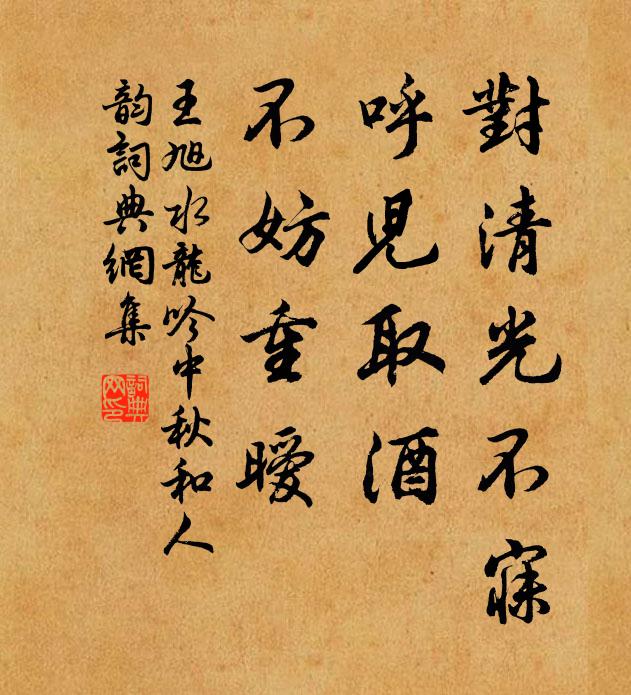 對清光不寐
呼兒取酒
不妨重曖
王旭水龍吟中秋和人
韵詞典網集
詞典
网印